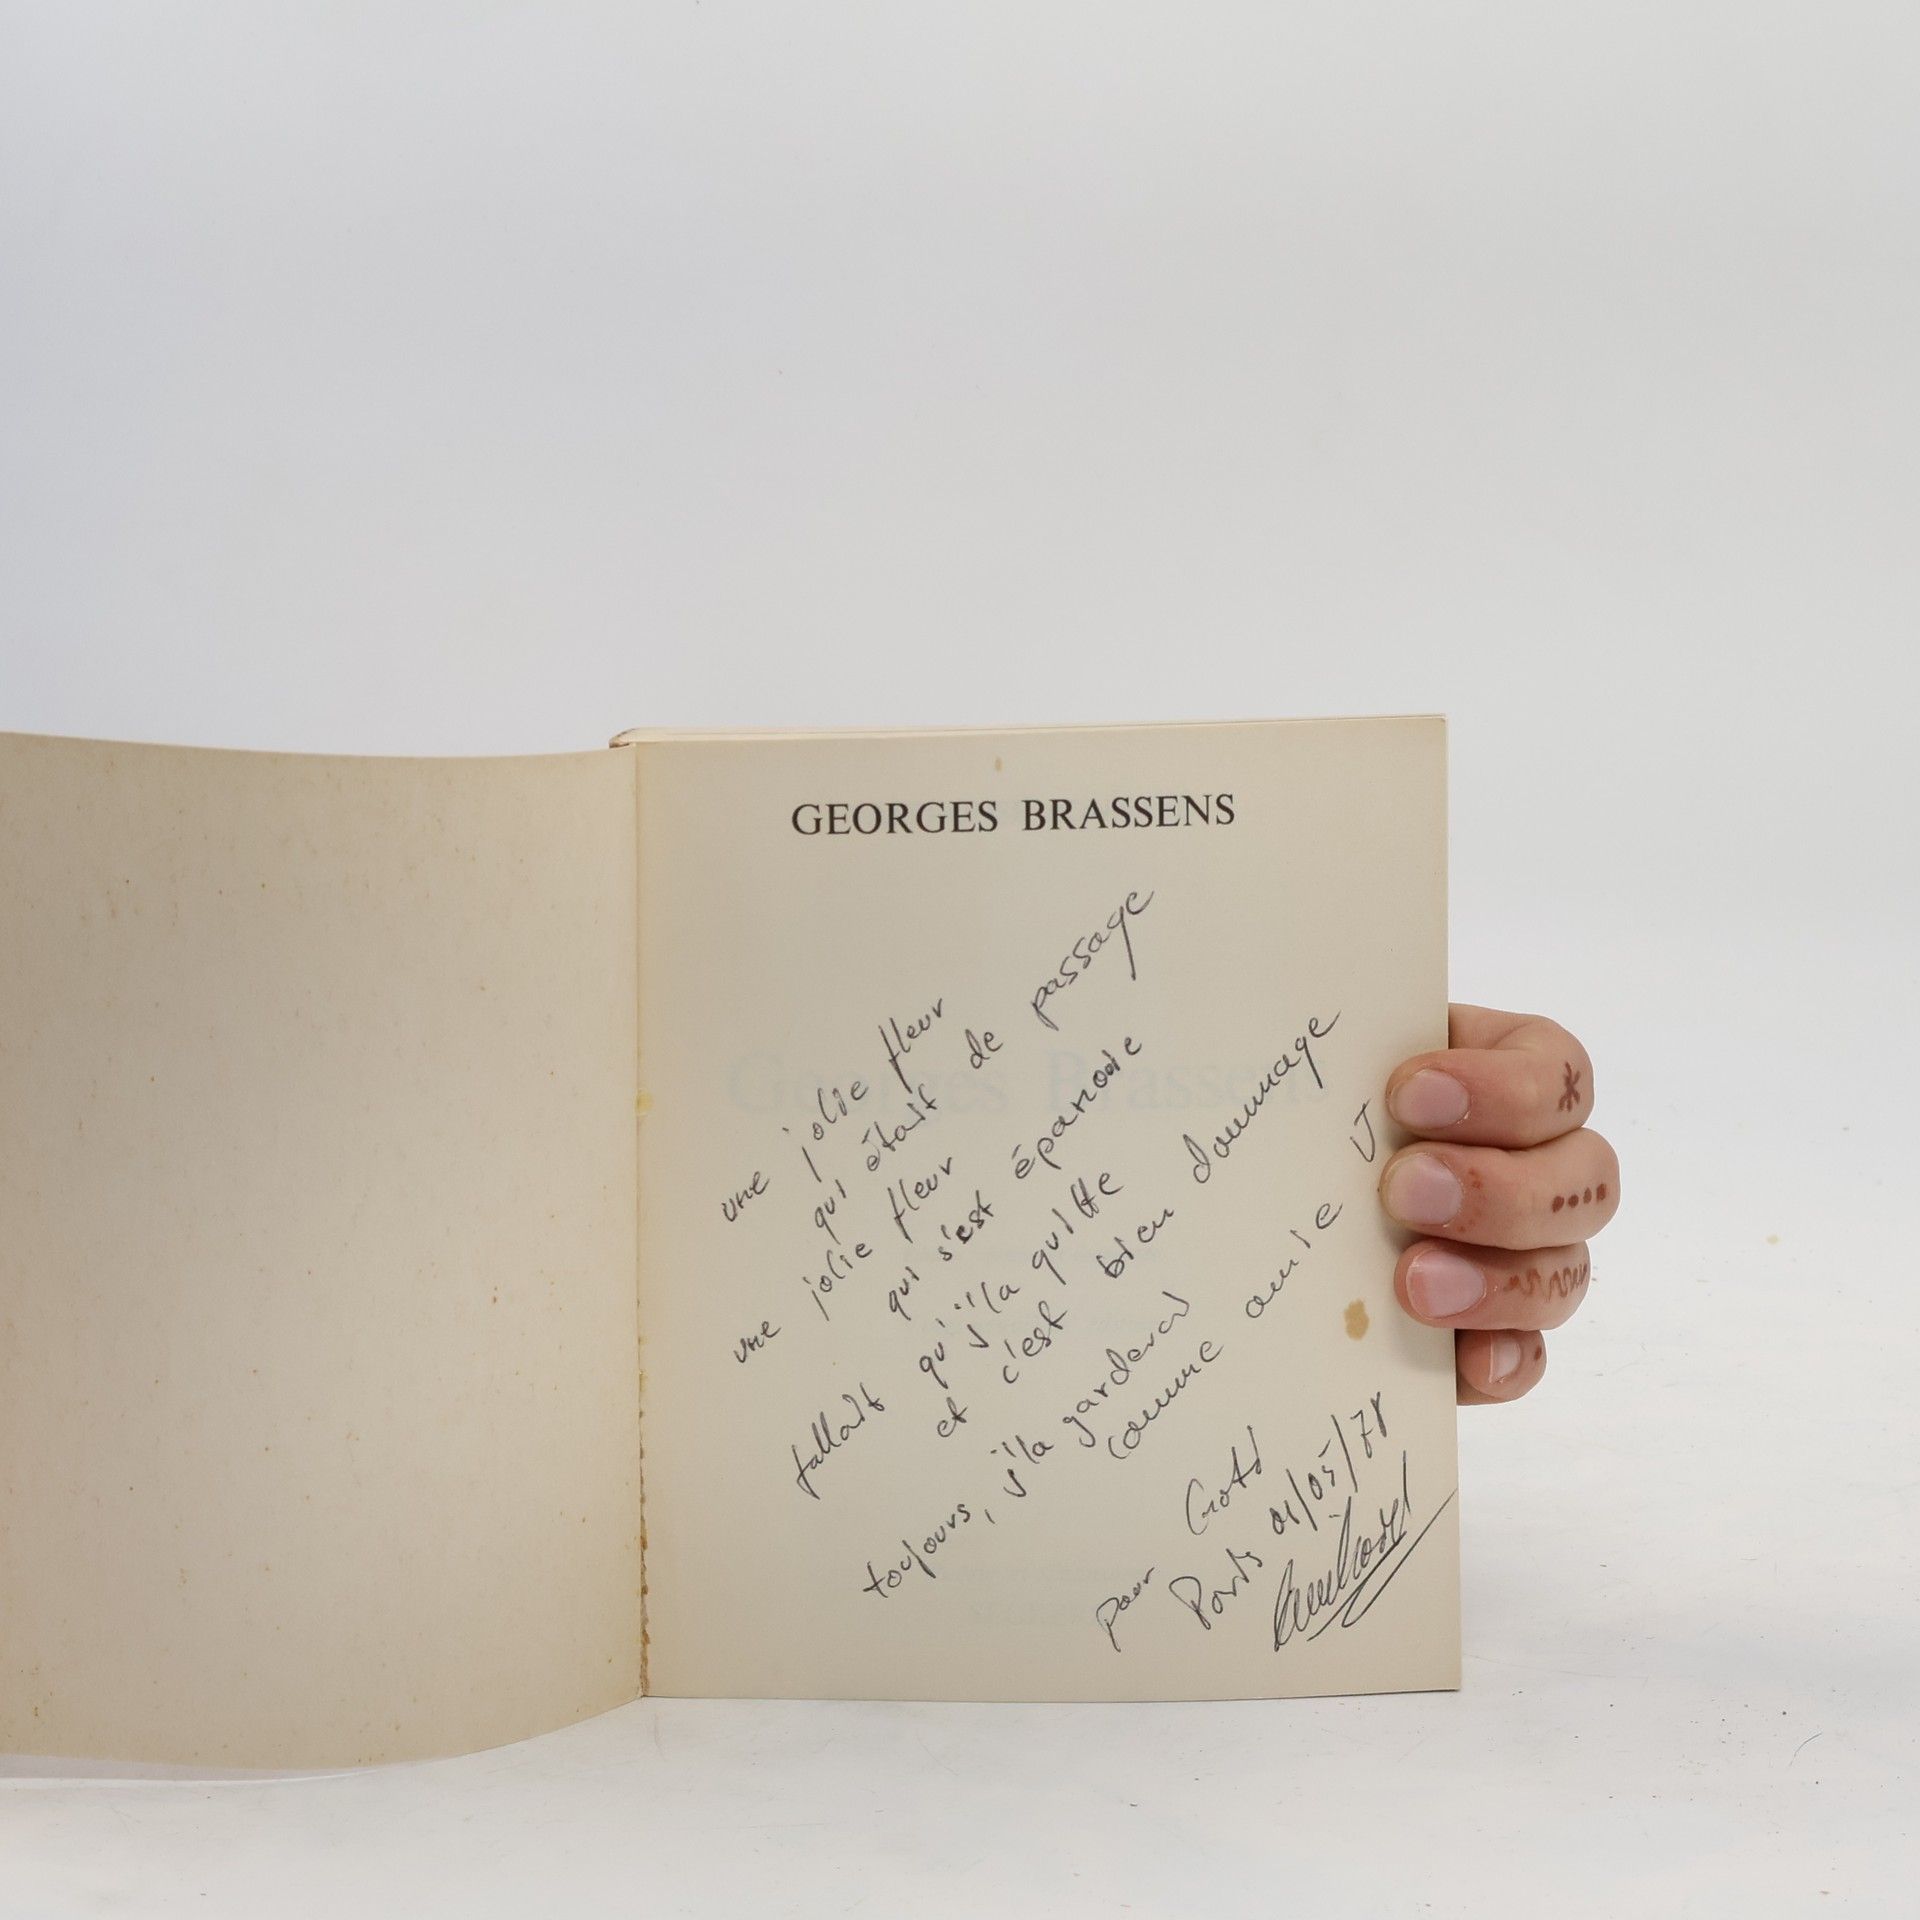 GEORGES BRASSENS
une jolie fleur
qui était de passage
une jolie fleur
qui s'est épanouie
fallait qu'j'la quitte
et c'est bien dommage
toujours, j'la garderai
comme amie
pour
Paris 01/05/78